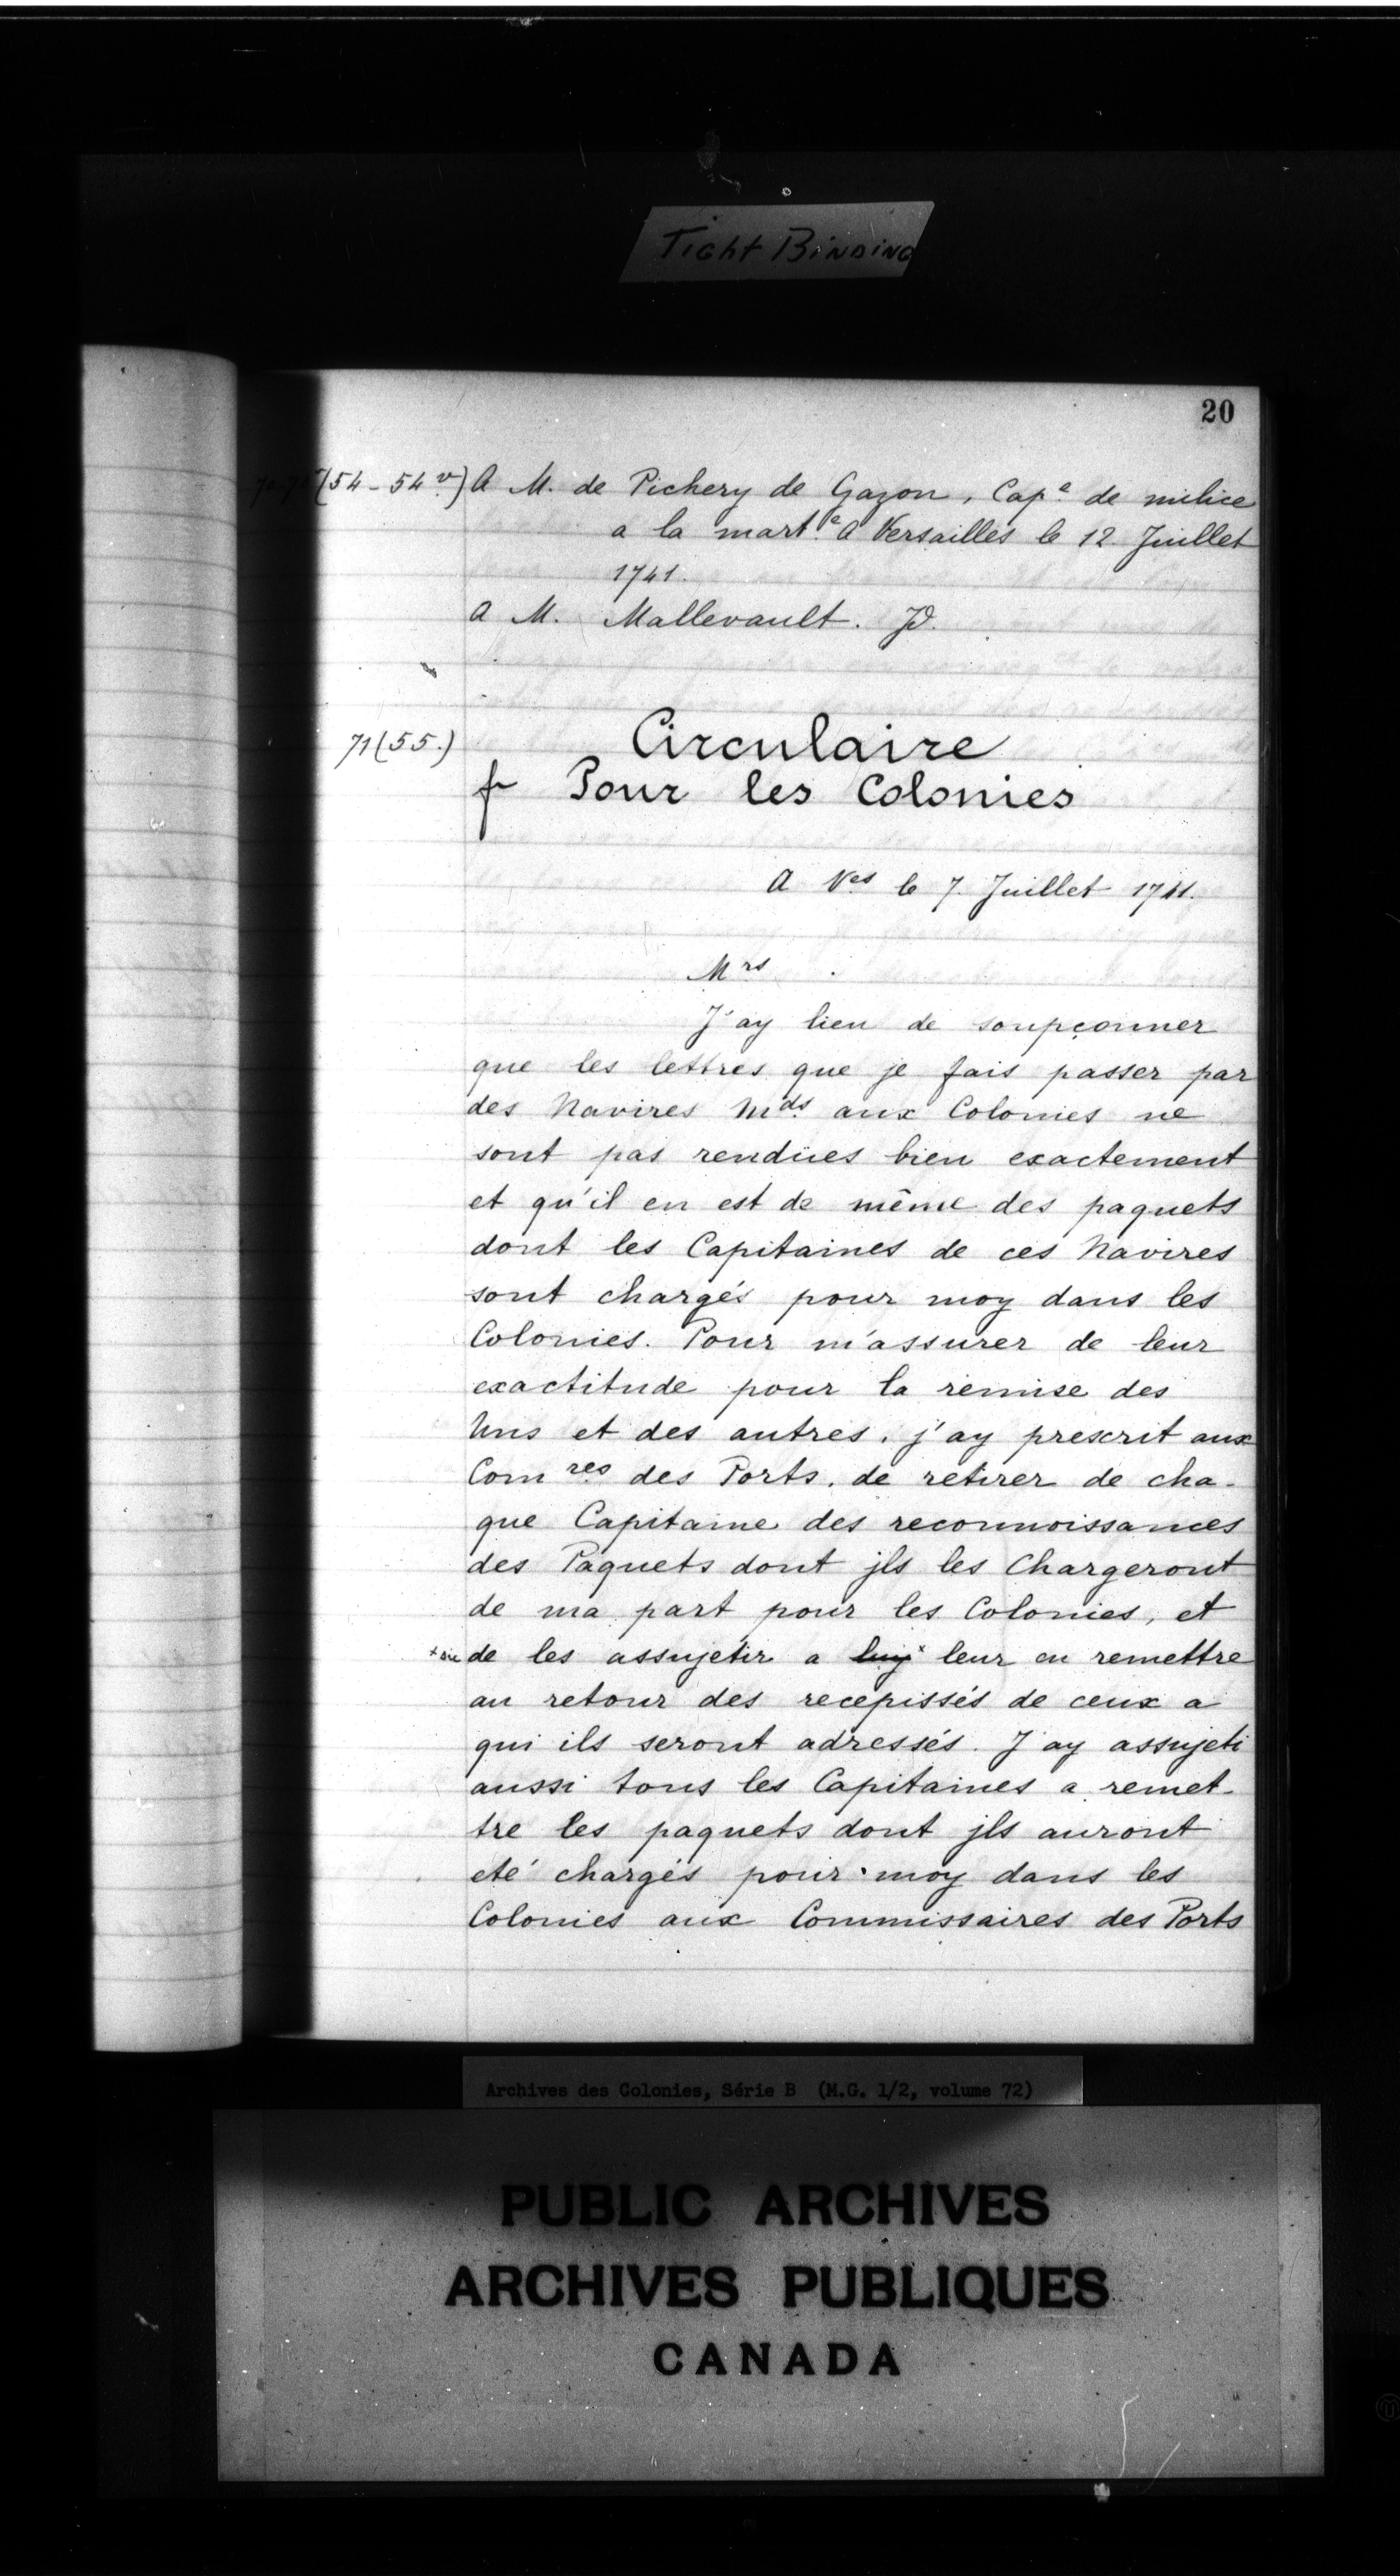 Tight Binding
20
(54-54 v.) A M. de Pichery de Gazon, Cap.e de milice
a la mart.e A Versailles le 12 Juillet
1741.
A M. Mallevault. Jd.
71 (55.)
Circulaire
Pour les Colonies
A V.es le 7. Juillet 1741.
Mrs
J'ay lieu de soupçonner
que les lettres que je fais passer par
des Navires Mds. aux Colonies ne
sont pas rendües bien exactement
et qu'il en est de même des paquets
dont les Capitaines de ces Navires
sont chargés pour moy dans les
Colonies. Pour m'assurer de leur
exactitude pour la remise des
Uns et des autres, j'ay prescrit aux
Com res des Ports, de retirer de cha-
que Capitaine des reconnoissances
des Paquets dont jls les Chargeront
de ma part pour les Colonies, et
de les assujetir a luy x leur en remettre
au retour des recepissés de ceux a
qui ils seront adressés. J'ay assujeti
aussi tous les Capitaines a remet-
tre les paquets dont jls auront
eté chargés pour moy dans les
Colonies aux Commissaires des Ports
Archives des Colonies, Série B (M.G. 1/2, volume 72)
PUBLIC ARCHIVES
ARCHIVES PUBLIQUES
CANADA